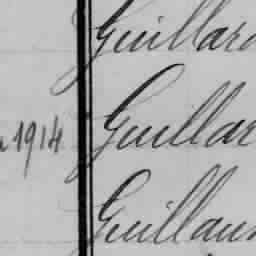 Guillard
1914 Guillar
Guillau